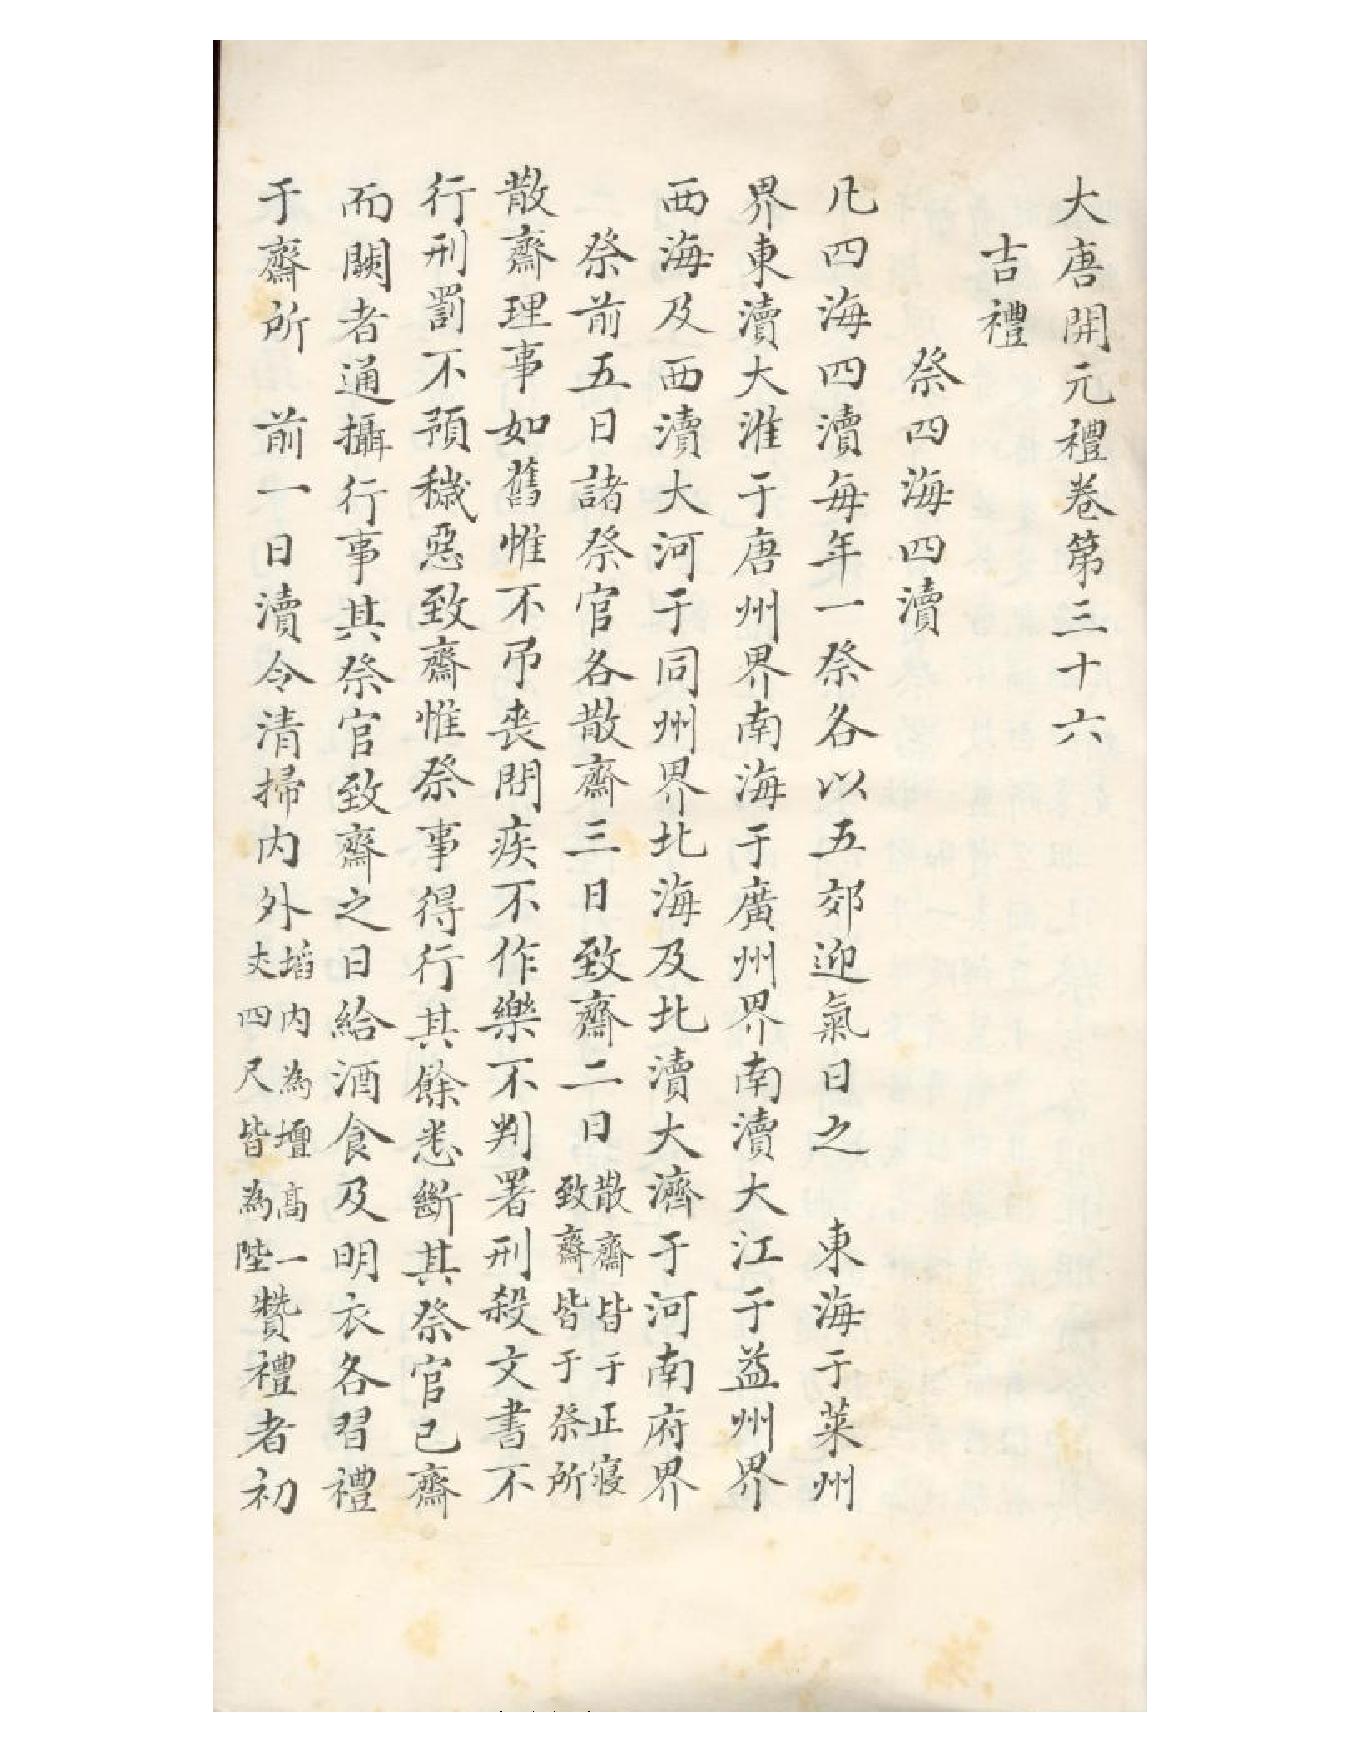 大唐開元禮卷第三十六
吉禮
祭四海四瀆
凡四海四瀆每年一祭各以五郊迎氣日之　東海于萊州
界東瀆大淮于唐州界南海于廣州界南瀆大江于益州界
西海及西瀆大河于同州界北海及北瀆大濟于河南府界
祭前五日諸祭官各散齋三日致齋二日散齋皆于正寢致齋皆于祭所
散齋理事如舊惟不吊喪問疾不作樂不判署刑殺文書不
行刑罰不預穢惡致齋惟祭事得行其餘悉斷其祭官已齋
而闕者通攝行事其祭官致齋之日給酒食及明衣各習禮
于齋所　前一日瀆令清掃內外壇內為壇高一丈四尺皆為陛贊禮者初